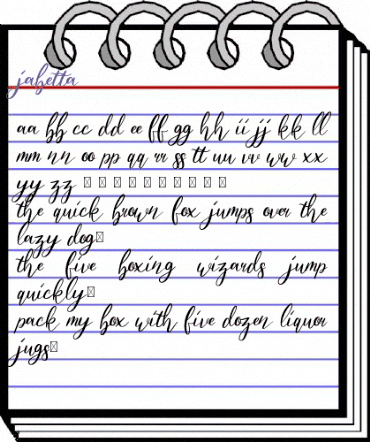 jabetta
aa bb cc dd ee ff gg hh ii jj kk ll
mm nn oo pp qq rr ss tt uu vv ww xx
yy zz □ □ □ □ □ □ □ □ □ □
the quick brown fox jumps over the
lazy dog□
the five boxing wizards jump
quickly□
pack my box with five dozen liquor
jugs□